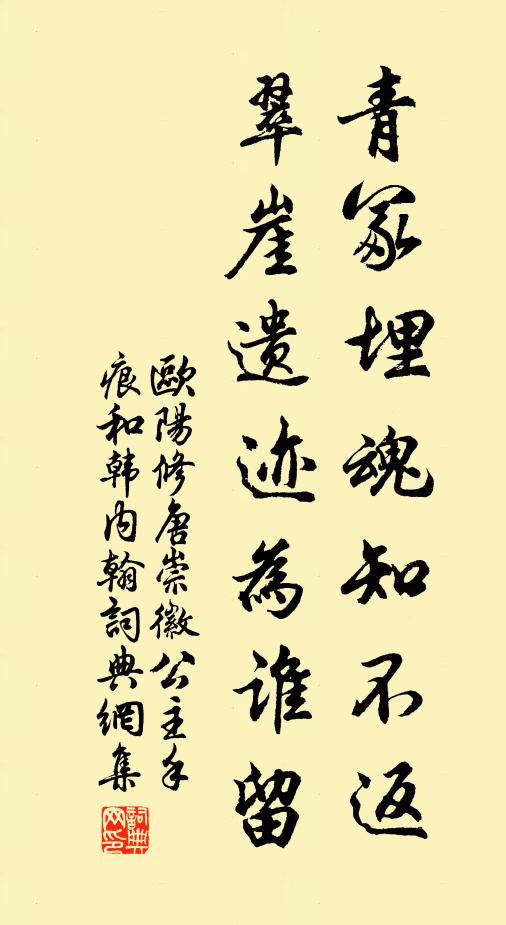 青冢埋魂知不返
翠崖遺迹為誰留
歐陽修唐崇徽公主手
痕和韩内翰詞典網集
詞典網印